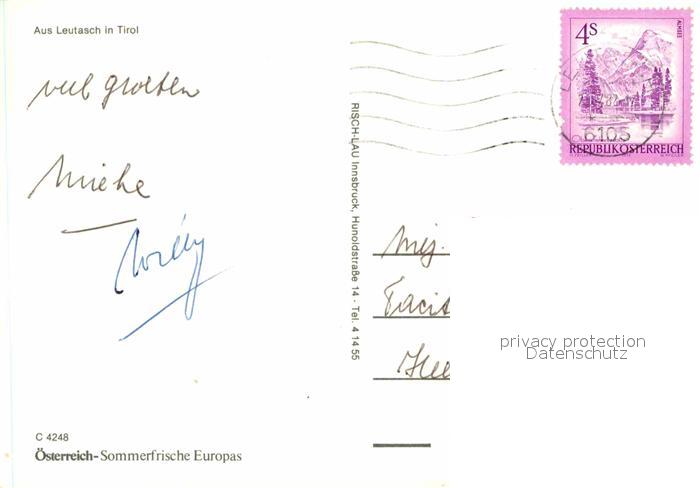 Aus Leutasch in Tirol
veel groeten
Mieke
C 4248
Österreich-Sommerfrische Europas
RISCH-LAU Innsbruck, Hunoldstraße 14 - Tel. 4 14 55
4S
ALMSEE
6105
REPUBLIK ÖSTERREICH
Mej.
Tacit
Hee
privacy protection
Datenschutz